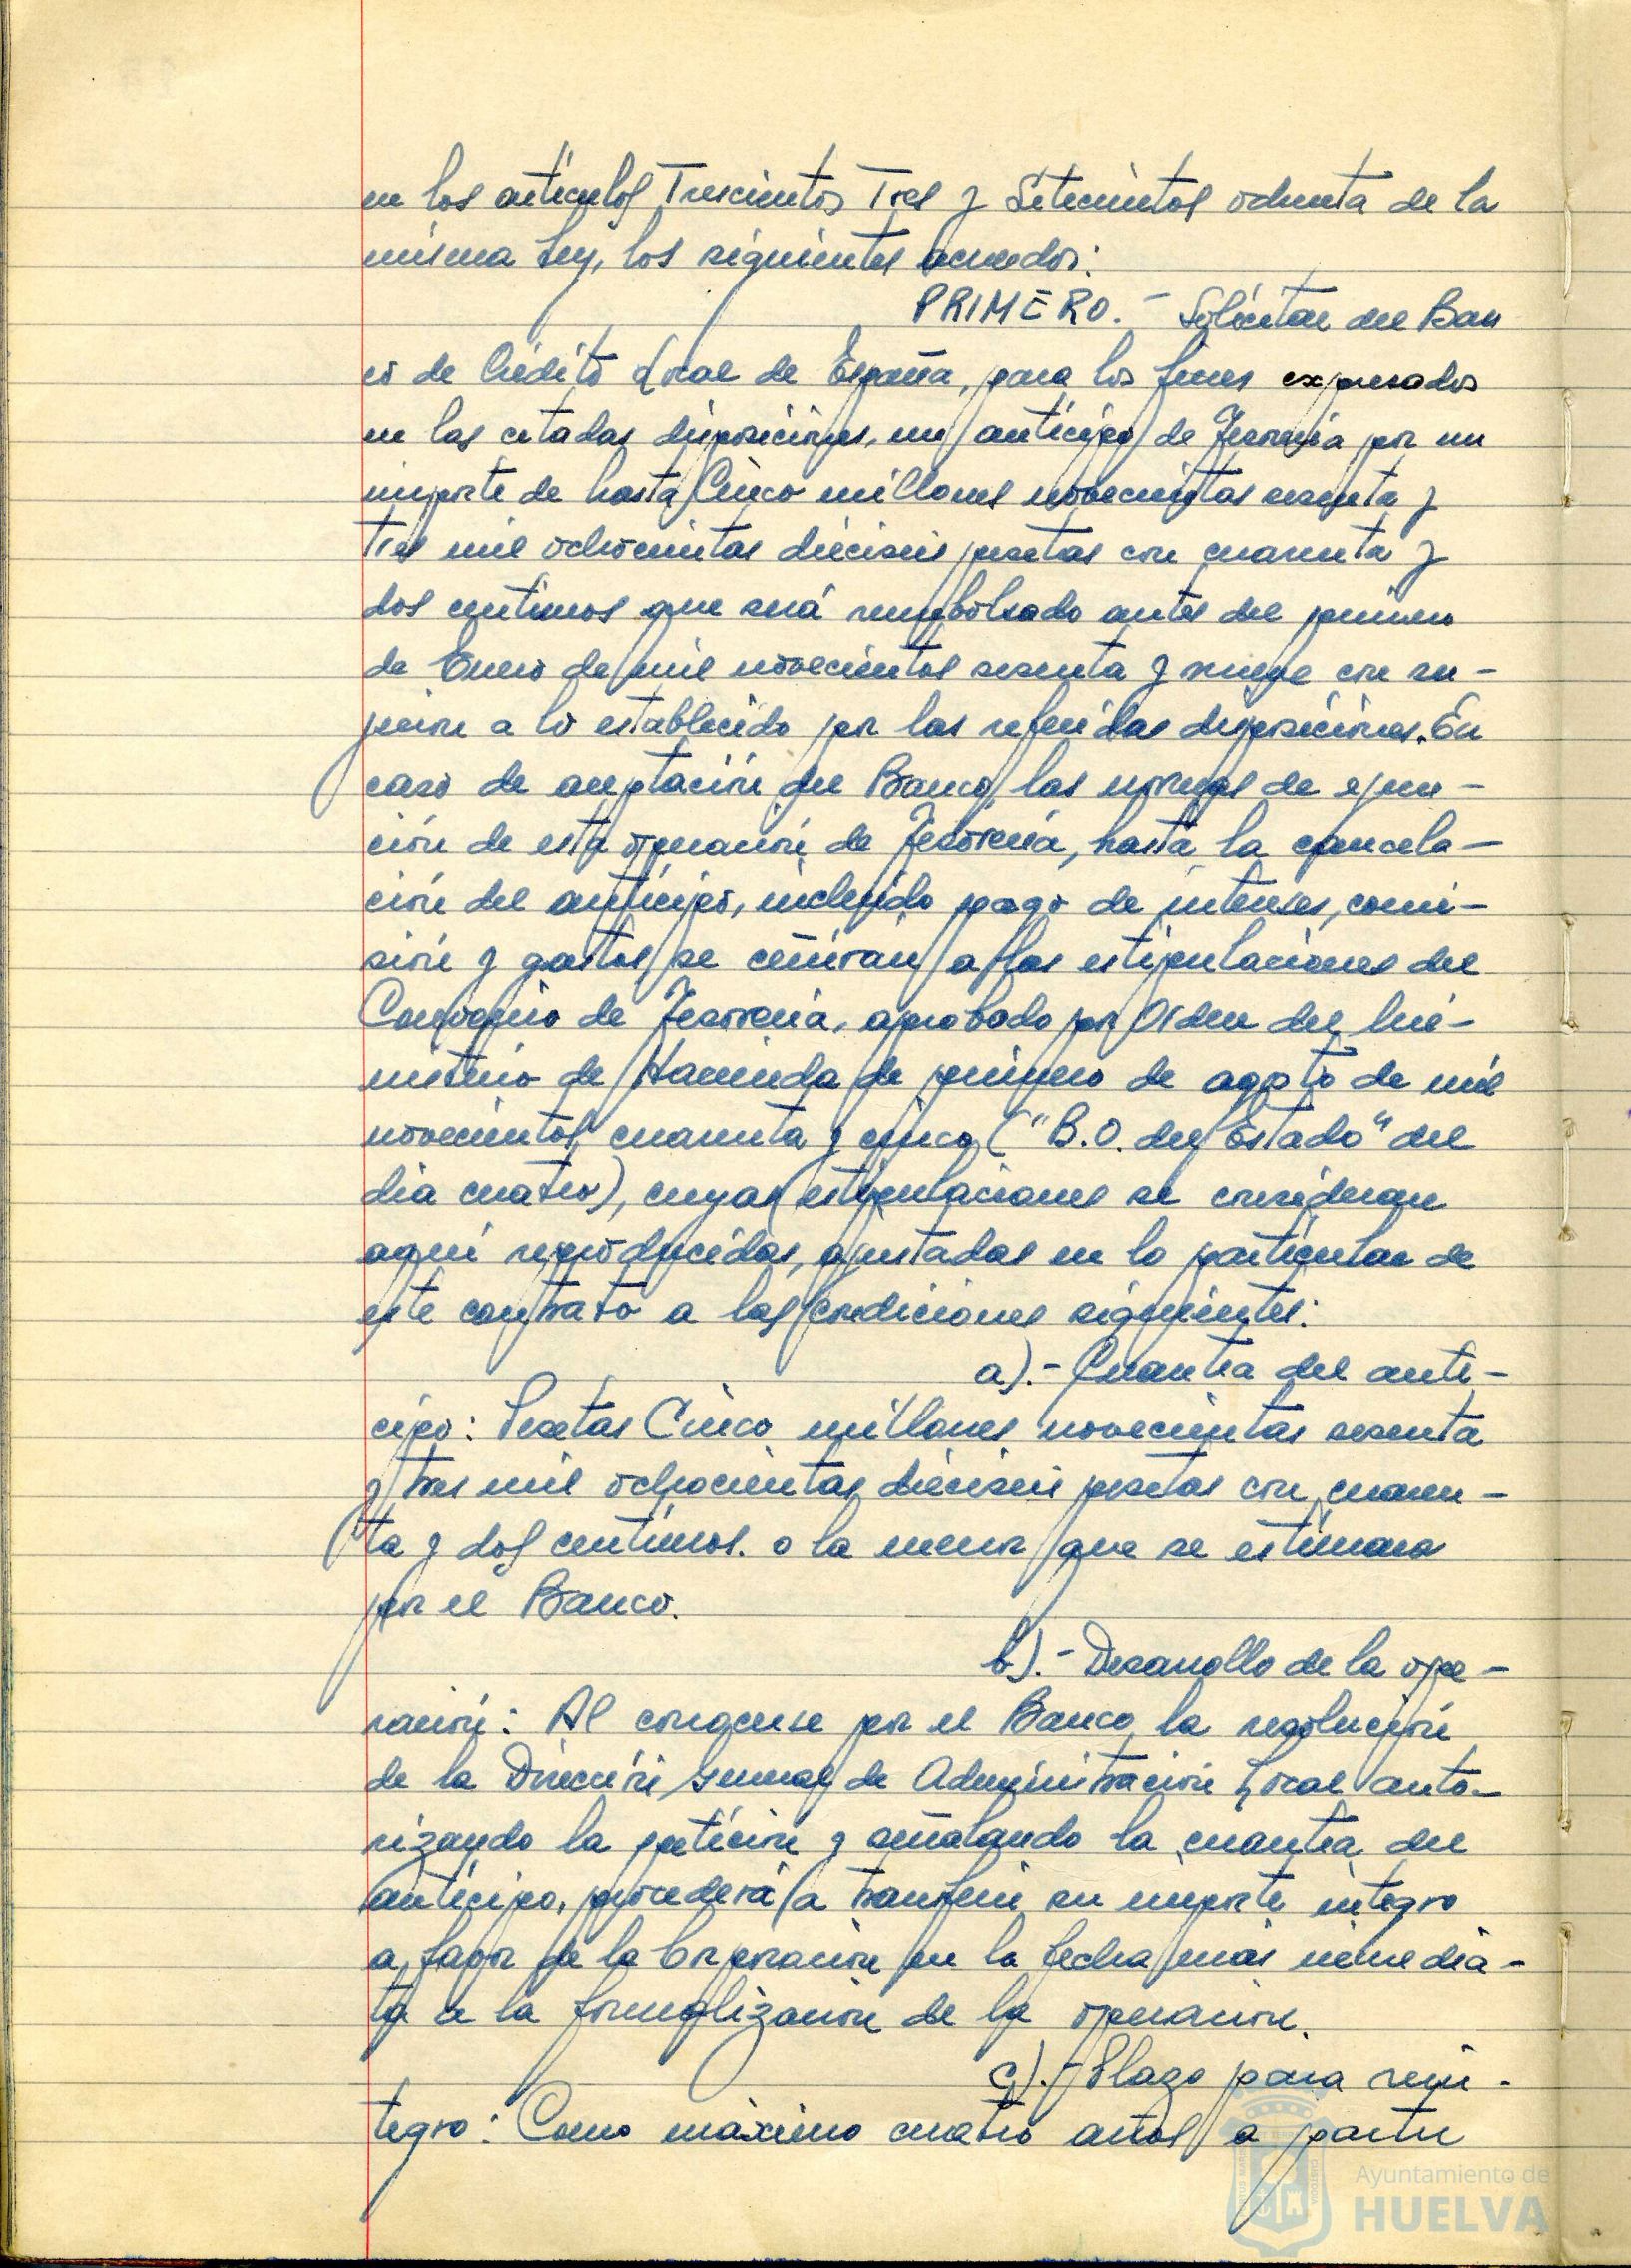 en los artículos Trescientos Tres y Setecientos ochenta de la
misma Ley, los siguientes acuerdos:
PRIMERO.- Solicitar del Ban
co de Crédito Local de España, para los fines expresados
en las citadas disposiciones, un anticipo de Tesorería por un
importe de hasta Cinco millones novecientas sesenta y
tres mil ochocientas dieciseis pesetas con cuarenta y
dos centimos que será reembolsado antes del primero
de Enero de mil novecientos sesenta y nueve con su-
jecion a lo establecido por las referidas disposiciones. En
caso de aceptación del Banco, las normas de ejecu-
ción de esta operación de Tesorería, hasta la cancela-
ción del anticipo, incluido pago de intereses, comi-
sión y gastos se ceñirán a las estipulaciones del
Convenio de Tesorería, aprobado por Orden del Mi-
nisterio de Hacienda de primero de agosto de mil
novecientos cuarenta y cinco ("B.O. del Estado" del
dia cuatro), cuyas estipulaciones se consideran
aquí reproducidas, ajustadas en lo particular de
este contrato a las condiciones siguientes:
a).- Cuantia del anti-
cipo: Pesetas Cinco millones novecientas sesenta
y tres mil ochocientas dieciseis pesetas con cuaren-
ta y dos centimos. o la menor que se estimara
por el Banco.
b).- Desarrollo de la ope-
ración: Al conocerse por el Banco la resolución
de la Dirección General de Administracion Local auto-
rizando la petición y señalando la cuantia del
anticipo, procederá a transferir su importe integro
a favor de la Corporacion en la fecha más inmedia-
ta a la formalizacion de la operacion.
c).- Plazo para rein-
tegro: Como máximo cuatro años a partir
Ayuntamiento de
HUELVA